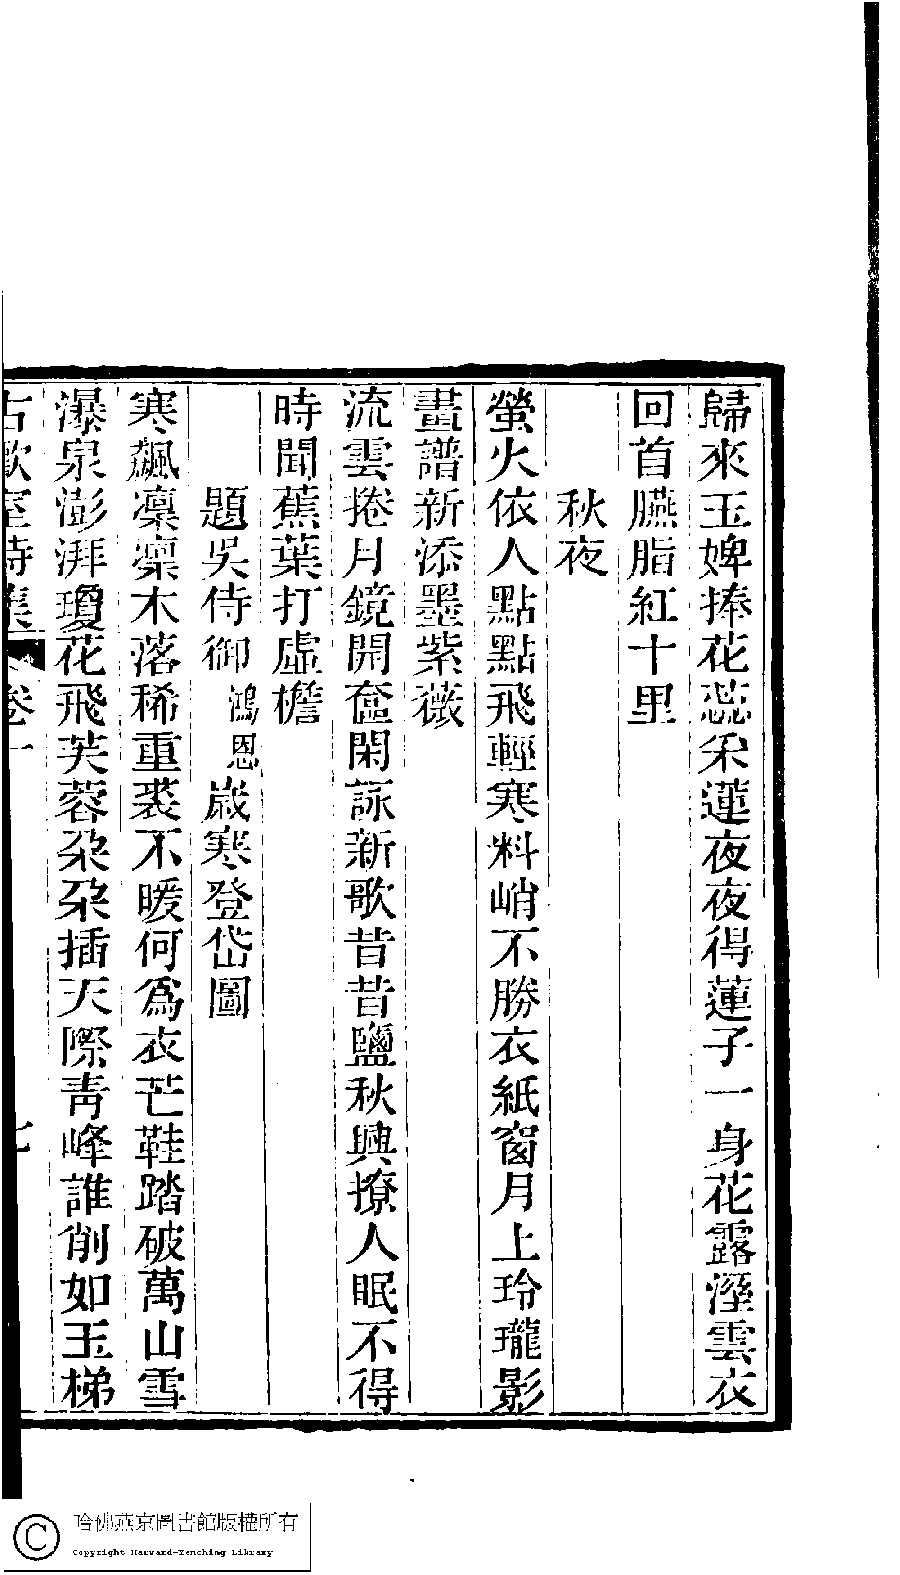 歸來玉婢捧花蕊采蓮夜夜得蓮子一身花露溼雲衣
回首臙脂紅十里
秋夜
螢火依人點點飛輕寒料峭不勝衣紙窗月上玲瓏影
畫譜新添墨紫薇
流雲捲月鏡開奩閑詠新歌昔昔鹽秋興撩人眠不得
時聞蕉葉打虛檐
題吳侍御鴻恩歲寒登岱圖
寒飆凛凛木落稀重裘不暖何爲衣芒鞋踏破萬山雪
瀑泉澎湃瓊花飛芙蓉朶朶插天際靑峰誰削如玉梯
室詩集 卷一
七
哈佛燕京圖書館版權所有
Copyright Harvard-Yenching Library